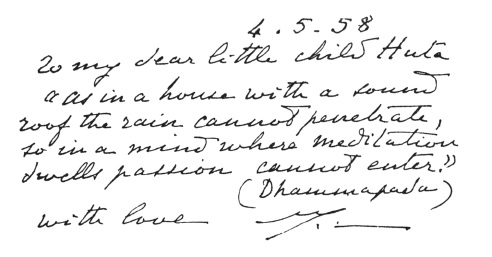 4.5.58
To my dear little child Huta
"as in a house with a sound
roof the rain cannot penetrate,
so in a mind where meditation
dwells passion cannot enter."
(Dhammapada)
with love